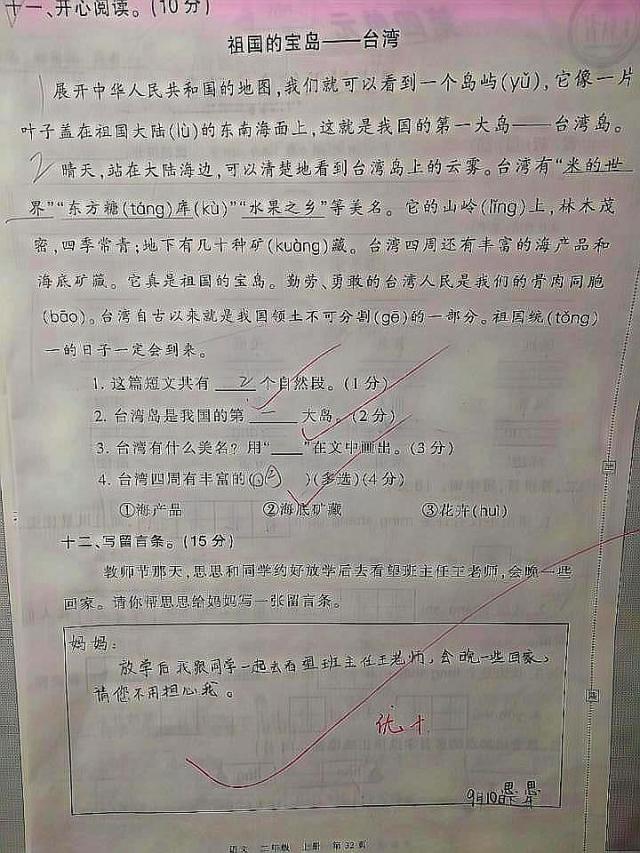 十一、开心阅读。(10分)
祖国的宝岛——台湾
1 展开中华人民共和国的地图，我们就可以看到一个岛屿(yǔ)，它像一片
叶子盖在祖国大陆(lù)的东南海面上，这就是我国的第一大岛——台湾岛。
2 晴天，站在大陆海边，可以清楚地看到台湾岛上的云雾。台湾有“米的世
界”“东方糖(táng)库(kù)”“水果之乡”等美名。它的山岭(lǐng)上，林木茂
密，四季常青；地下有几十种矿(kuàng)藏。台湾四周还有丰富的海产品和
海底矿藏。它真是祖国的宝岛。勤劳、勇敢的台湾人民是我们的骨肉同胞
(bāo)。台湾自古以来就是我国领土不可分割(gē)的一部分。祖国统(tǒng)
一的日子一定会到来。
1. 这篇短文共有 2 个自然段。(1分)
2. 台湾岛是我国的第 一 大岛。(2分)
3. 台湾有什么美名？用“____”在文中画出。(3分)
4. 台湾四周有丰富的(①②)(多选)(4分)
①海产品 ②海底矿藏 ③花卉(huì)
十二、写留言条。(15分)
教师节那天，思思和同学约好放学后去看望班主任王老师，会晚一些
回家。请你帮思思给妈妈写一张留言条。
妈妈：
放学后我跟同学一起去看望班主任王老师，会晚一些回家，
请您不用担心我。
优+
思思
9月10日下午
语文 二年级 上册 第32页